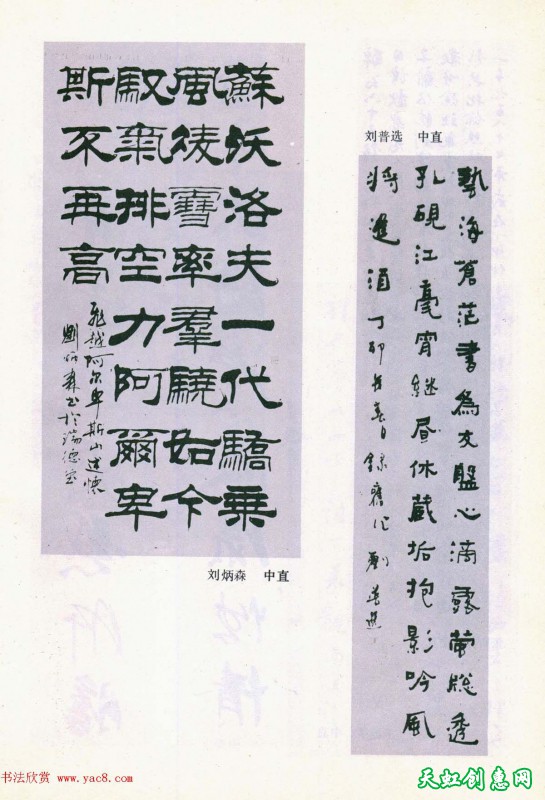 蘇沃洛夫一代驕乘
風淩雪率羣驍如今
馭氣排空力阿爾卑
斯不再高
飛越阿尔卑斯山述懷
劉炳森书於瑞德
刘炳森 中直
刘普选 中直
藝海蒼茫書為友盤心滴露牕透
孔硯江毫宵继昼休藏垢抱影吟風
將進酒丁卯春日錄舊作劉普選
书法欣赏 www.yac8.com
天虹创意网